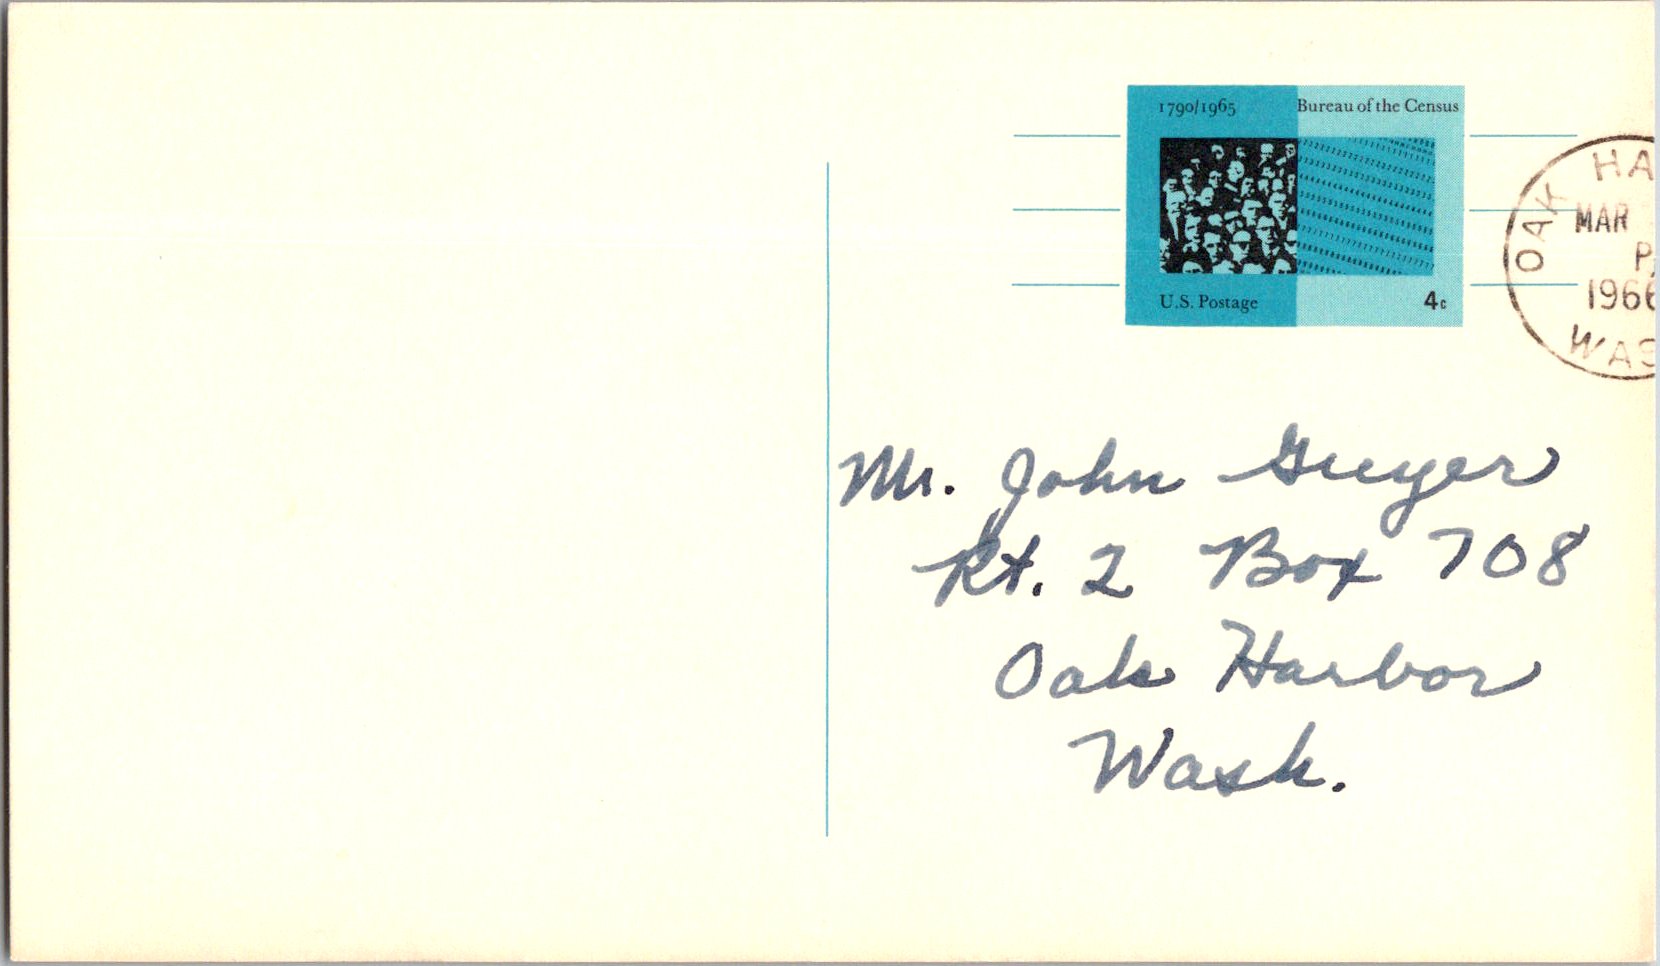 1790/1965 Bureau of the Census
U.S. Postage 4c
OAK HA
MAR
P.
1966
WAS
Mr. John
Rt. 2 Box 708
Oak Harbor
Wash.